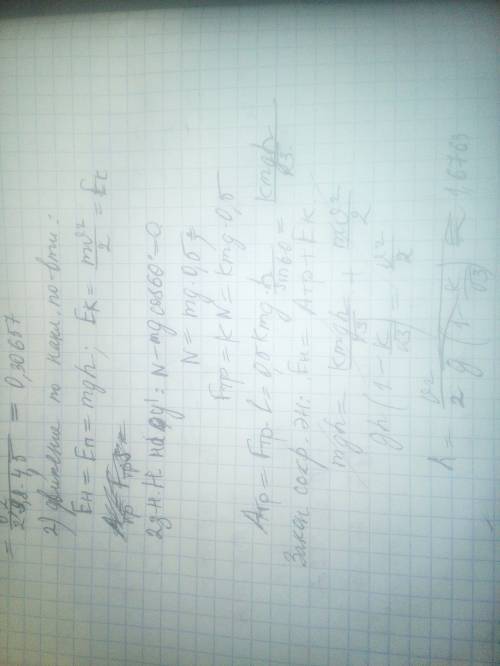 = v² / (2·9,8·4,5) = 0,30657
2) движение по накл. пов-ти:
Eн = Eп = mgh; Eк = mv²/2 = Eк
2 з-н. Н. на оу: N - mg cos60° = 0
N = mg·0,5
Fтр = kN = kmg·0,5
Aтр = Fтр·l = 0,5kmg · h/sin60 = kmgh/√3
Закон сохр. эн: Eн = Aтр + Eк
mgh = kmgh/√3 + mv²/2
gh(1 - k/√3) = v²/2
h = v² / 2g(1 - k/√3) = 1,6769